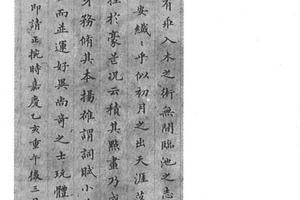 有乖入木之術無間臨池之志
安纖〻乎似初月之出天涯落
挫於豪芒況云積其點畫乃成
身務脩其本揚雄謂詞賦小
而並運好異尚奇之士玩體
即請正捥時嘉慶乙亥重午後三